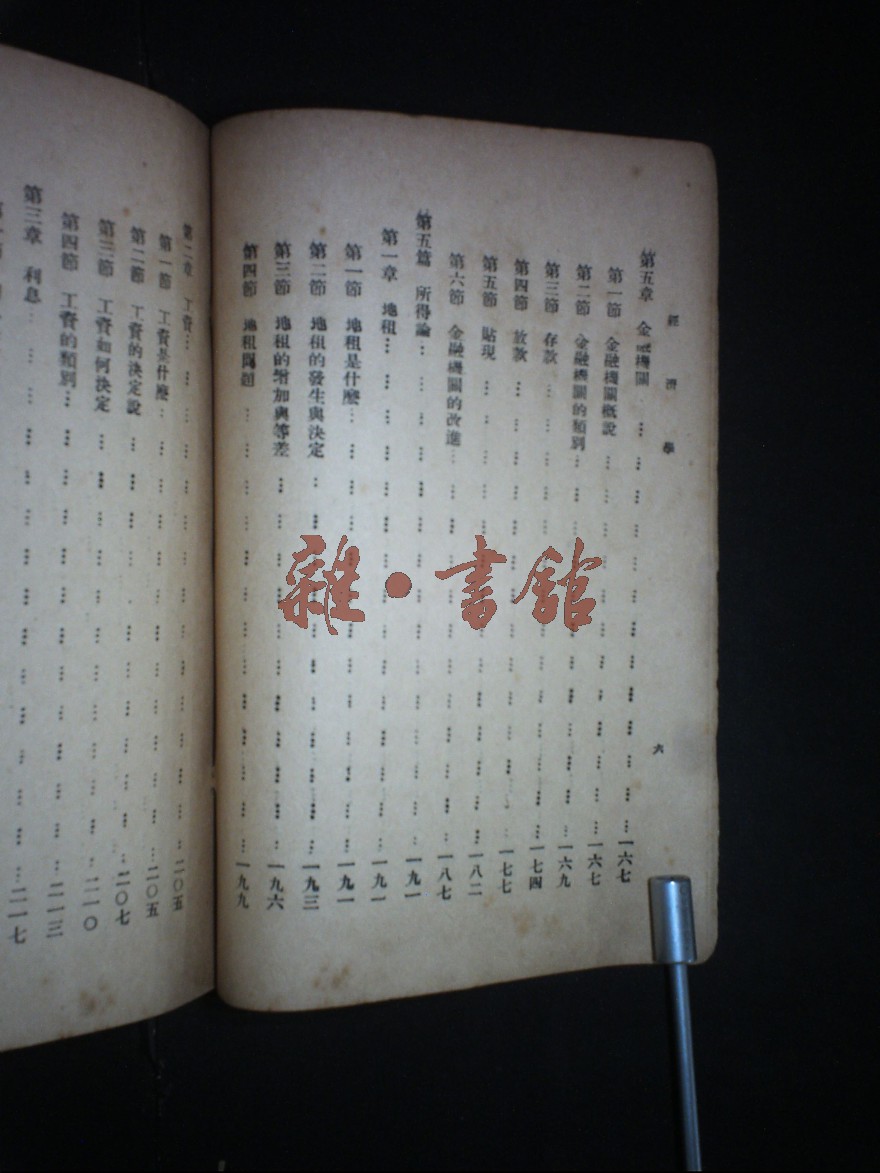 經濟學
六
第五章 金融機關…一六七
第一節 金融機關概說…一六七
第二節 金融機關的類別…一六九
第三節 存款…一七四
第四節 放款…一七七
第五節 貼現…一八二
第六節 金融機關的改進…一八七
第五篇 所得論…一九一
第一章 地租…一九一
第一節 地租是什麼…一九一
第二節 地租的發生與決定…一九三
第三節 地租的增加與等差…一九六
第四節 地租問題…一九九
第二章 工資…二〇五
第一節 工資是什麼…二〇五
第二節 工資的決定說…二〇七
第三節 工資如何決定…二一〇
第四節 工資的類別…二一三
第三章 利息…二一七
雜·書館